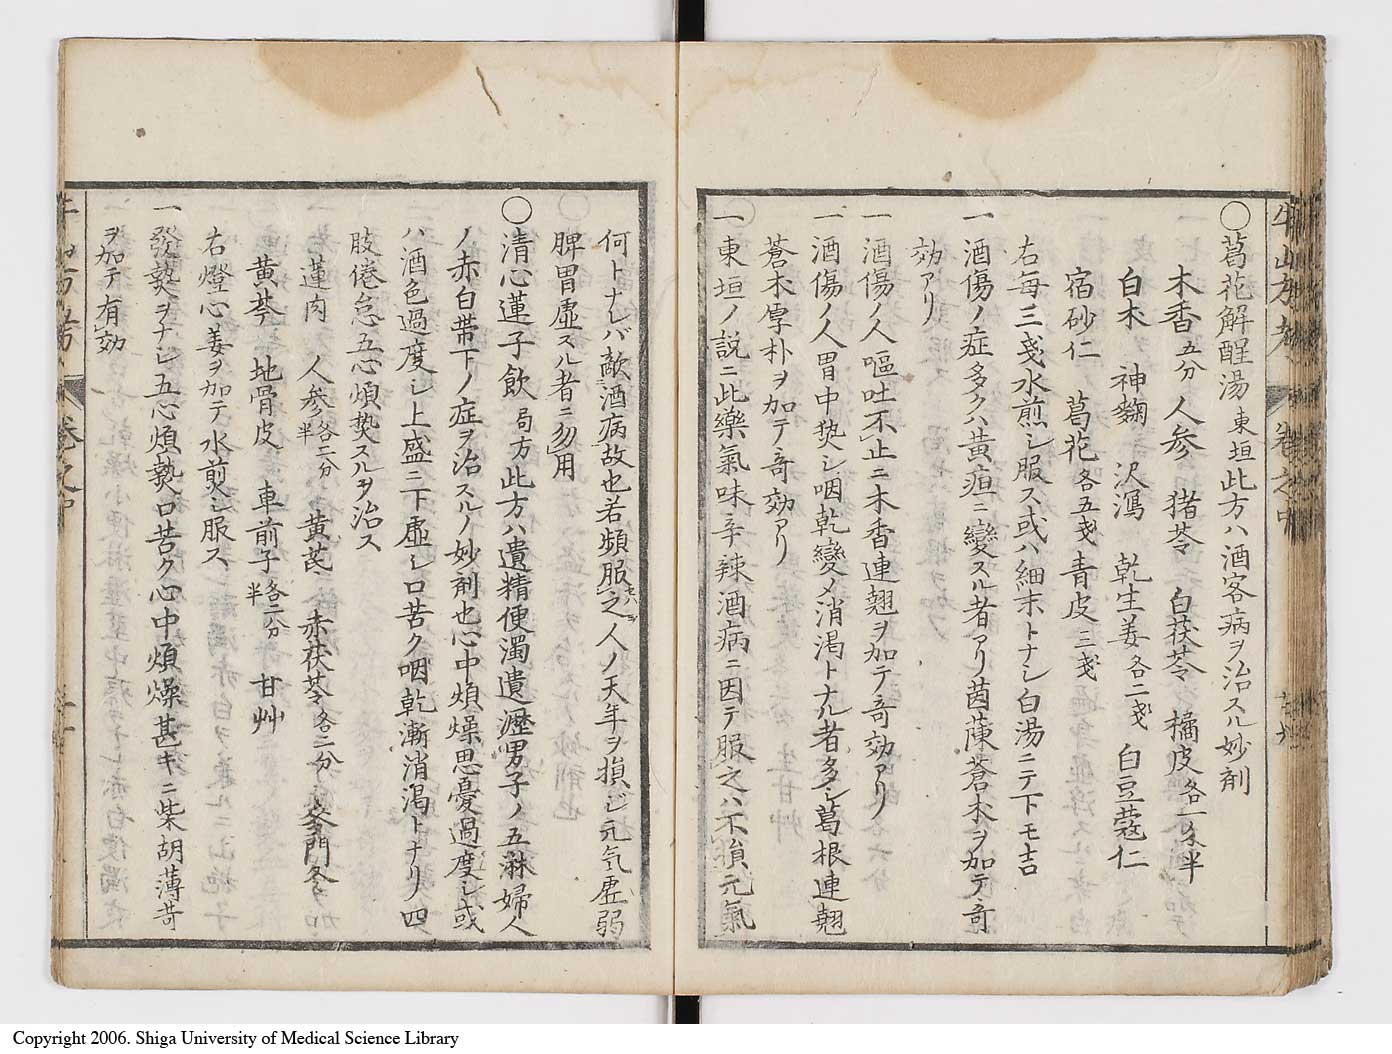 〇葛花解酲湯 東垣 此方ハ酒客病ヲ治スル妙剤
木香 五分 人参 猪苓 白茯苓 橘皮 各一戔半
白朮 神麹 沢瀉 乾生姜 各二戔 白豆蔻仁
宿砂仁 葛花 各五戔 青皮 三戔
右毎三戔水煎シ服ス或ハ細末トナシ白湯ニテ下モ吉
一酒傷ノ症多クハ黄疸ニ變スル者アリ茵蔯蒼朮ヲ加テ竒
効アリ
一酒傷ノ人嘔吐不止ニ木香連翹ヲ加テ奇効アリ
一酒傷ノ人胃中热シ咽乾變メ消渇トナル者多シ葛根連翹
蒼朮厚朴ヲ加テ奇効アリ
一東垣ノ説ニ此藥氣味辛辣酒病ニ因テ服之ハ不損元氣
牛山方考 巻之中
何トナレバ敵酒病故也若頻服之人ノ天年ヲ損シ元気虚弱
脾胃虚スル者ニ勿用
〇清心蓮子飲 局方 此方ハ遺精便濁遺瀝男子ノ五淋婦人
ノ赤白帯下ノ症ヲ治スルノ妙剤也心中煩燥思憂過度シ或
ハ酒色過度シ上盛ニ下虚シ口苦ク咽乾漸消渇トナリ四
肢倦怠五心煩热スルヲ治ス
蓮肉 人参 各二分半 黄芪 赤茯苓 各二分 麥門冬
黄芩 地骨皮 車前子 各二分半 甘艸
右燈心姜ヲ加テ水煎シ服ス
一發熱ヲナシ五心煩熱口苦ク心中煩燥甚キニ柴胡薄苛
ヲ加テ有効
牛山方考 巻之中